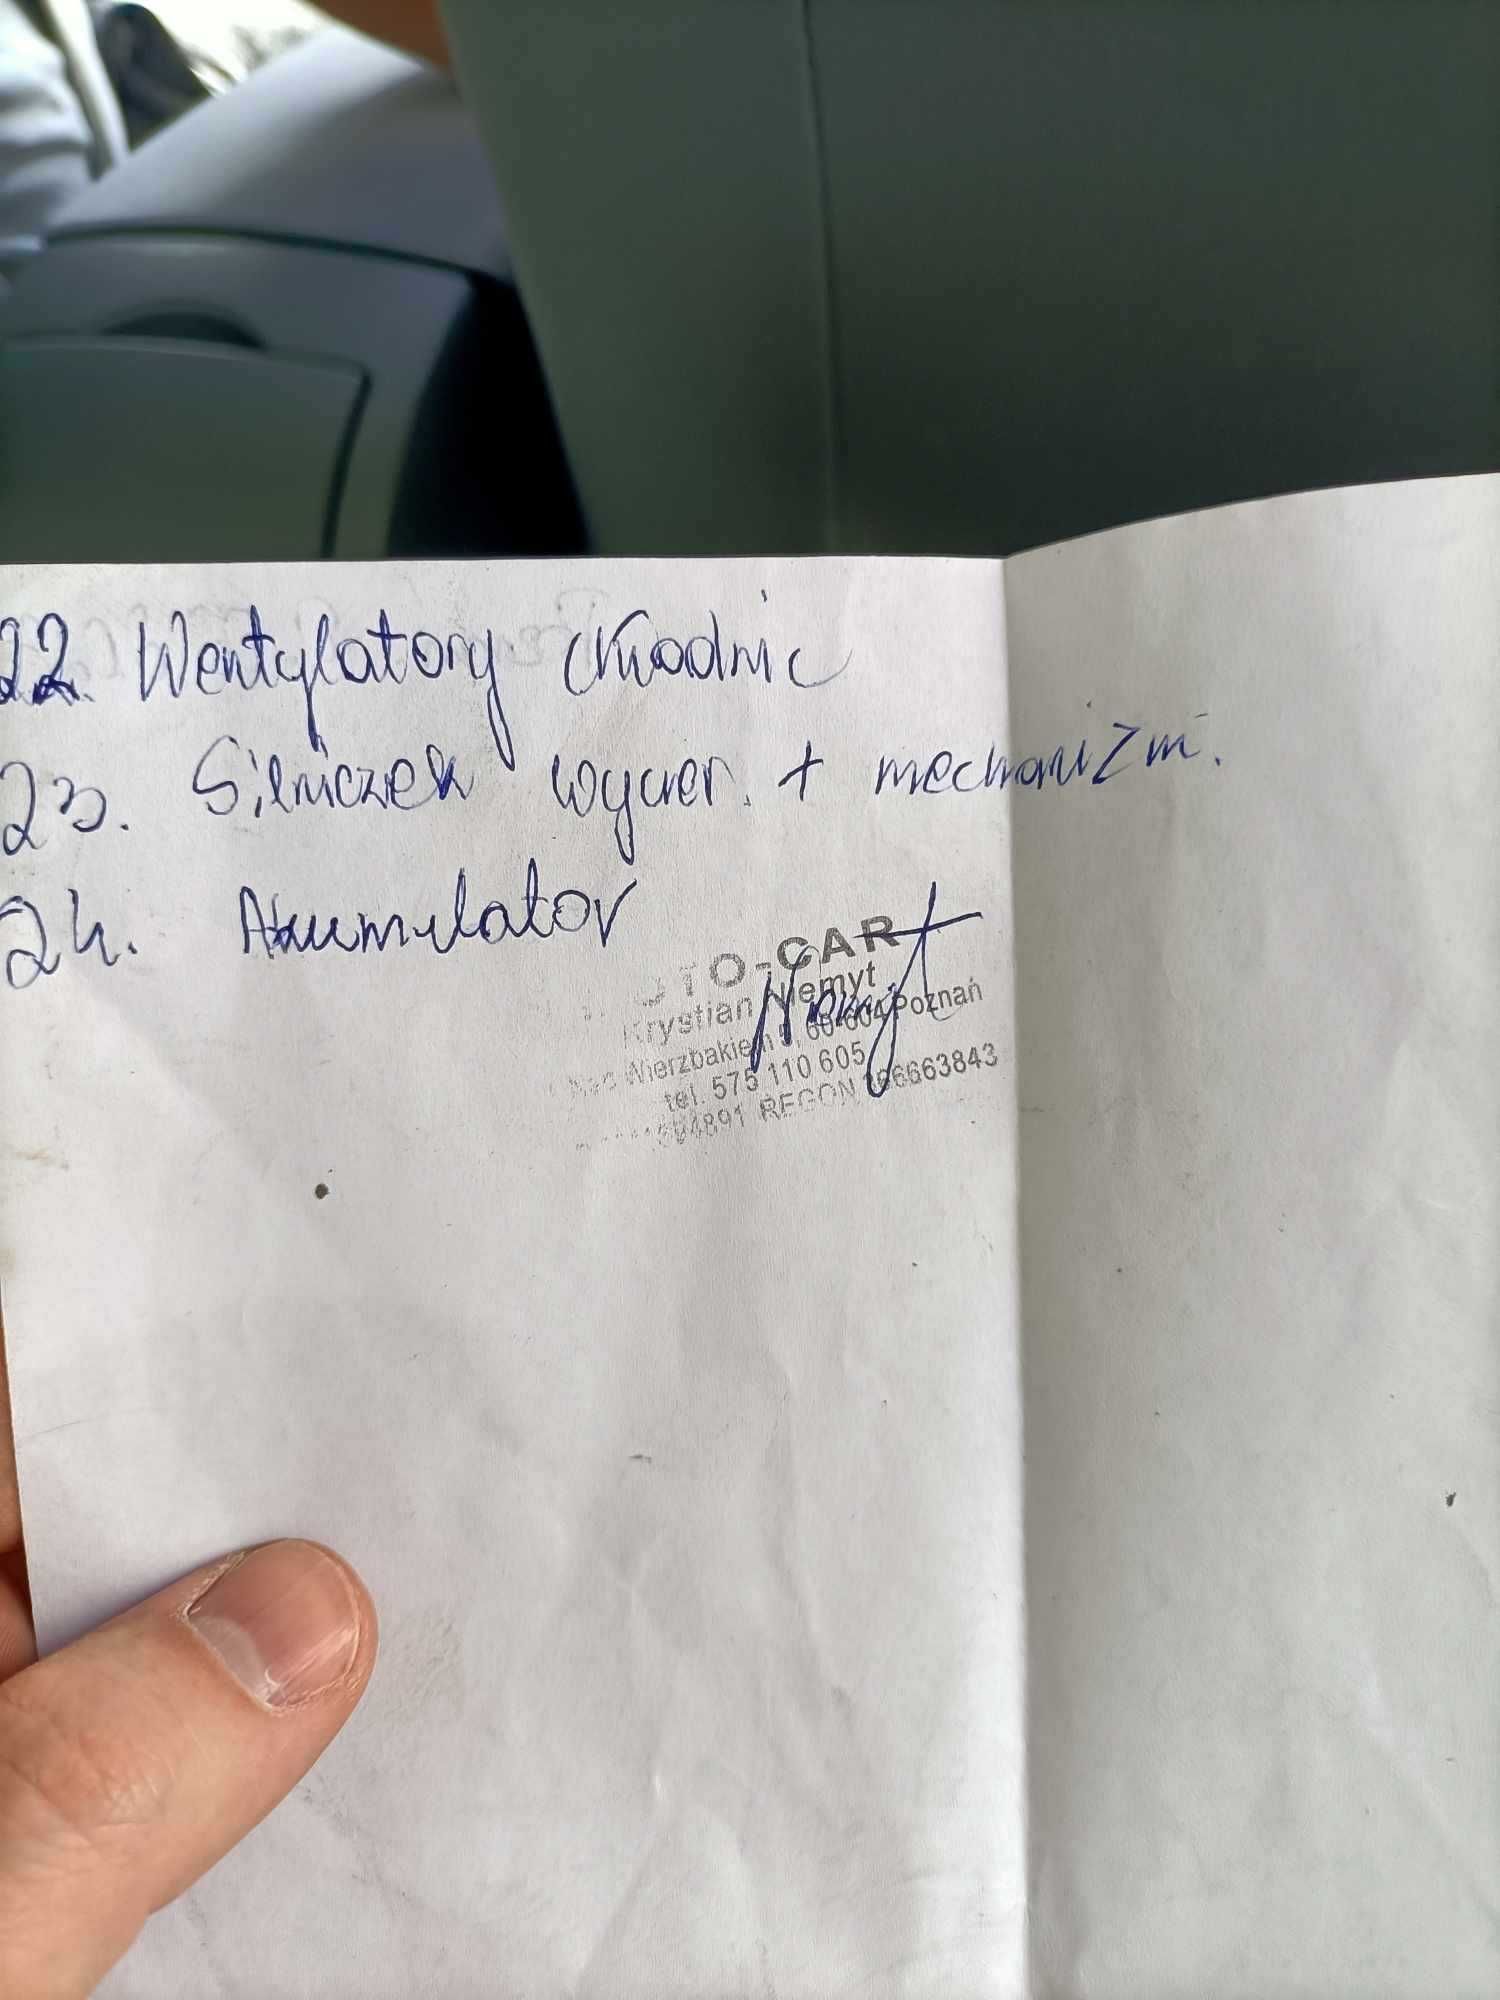 22. Wentylatory chłodnic
23. Silniczek wycier. + mechanizm.
24. Akumulator
OTO-CAR
Krystian Niemyt
Nad Wierzbakiem 5, 60-604 Poznań
tel. 575 110 605
4891 REGON 366663843